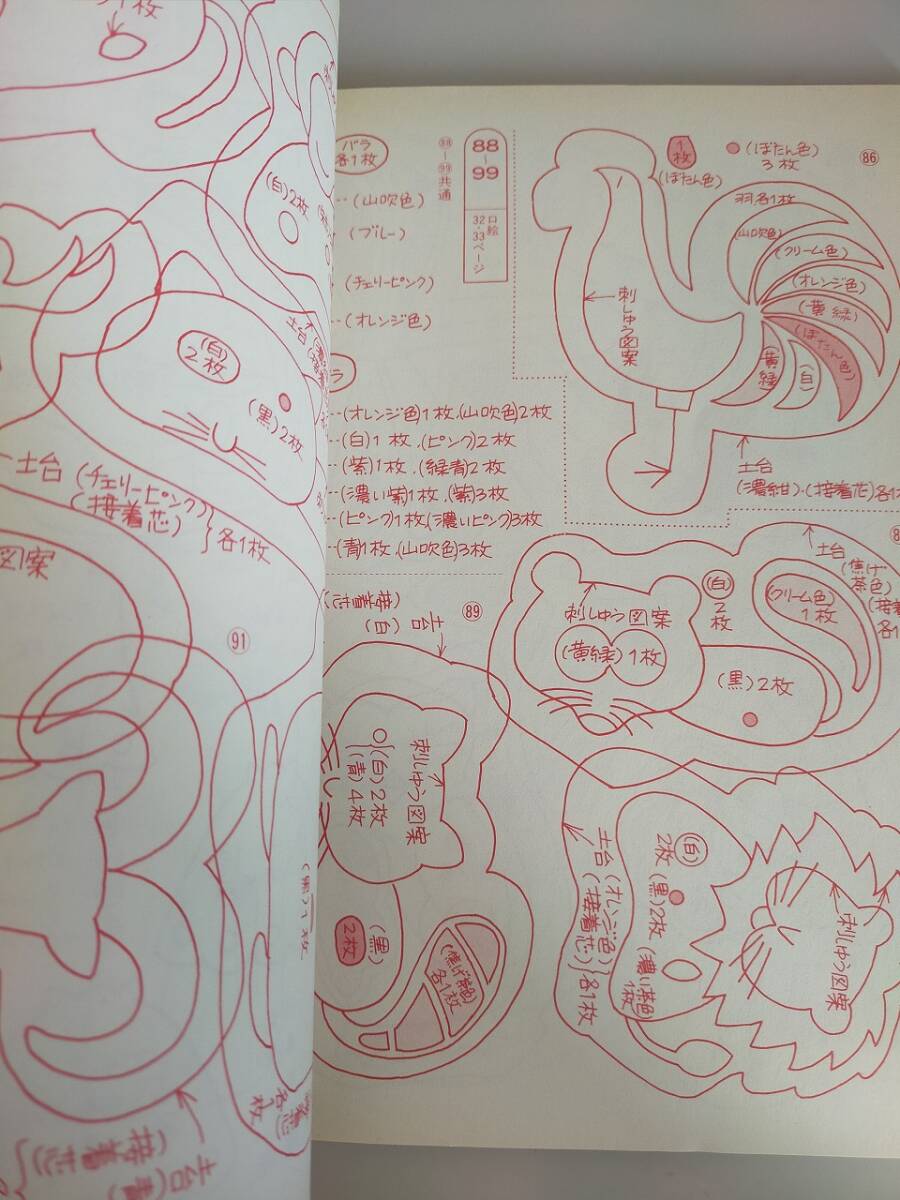 1枚
(白)2枚
(白)
2枚
(黒)2枚
土台(チェリーピンク)
(接着芯)
各1枚
図案
91
接着芯
土台(青
バラ
各1枚
(山吹色)
(ブルー)
(チェリーピンク)
(オレンジ色)
ラ
88〜99共通
88
〜
99
口絵
32・33ページ
(オレンジ色)1枚、(山吹色)2枚
(白)1枚、(ピンク)2枚
(紫)1枚、(緑青)2枚
(濃い紫)1枚、(紫)3枚
(ピンク)1枚、(濃いピンク)3枚
(青)1枚、(山吹色)3枚
86
1枚
(ぼたん色)
(ぼたん色)
3枚
羽各1枚
(山吹色)
(クリーム色)
(オレンジ色)
(黄緑)
(ぼたん色)
(白)
(黄緑)
刺しゅう図案
土台
(濃紺)・(接着芯)各1
土台
(焦げ
茶色)
(接着
各1
(クリーム色)
1枚
(白)
2枚
刺しゅう図案
(黄緑)1枚
(黒)2枚
89
土台
(白)
(接着芯)
刺しゅう図案
(白)2枚
(青)4枚
(黒)
2枚
(焦げ茶色)
各1枚
土台(オレンジ色)
(接着芯)
各1枚
(白)
2枚
(黒)2枚
(濃い茶色)
1枚
刺しゅう図案